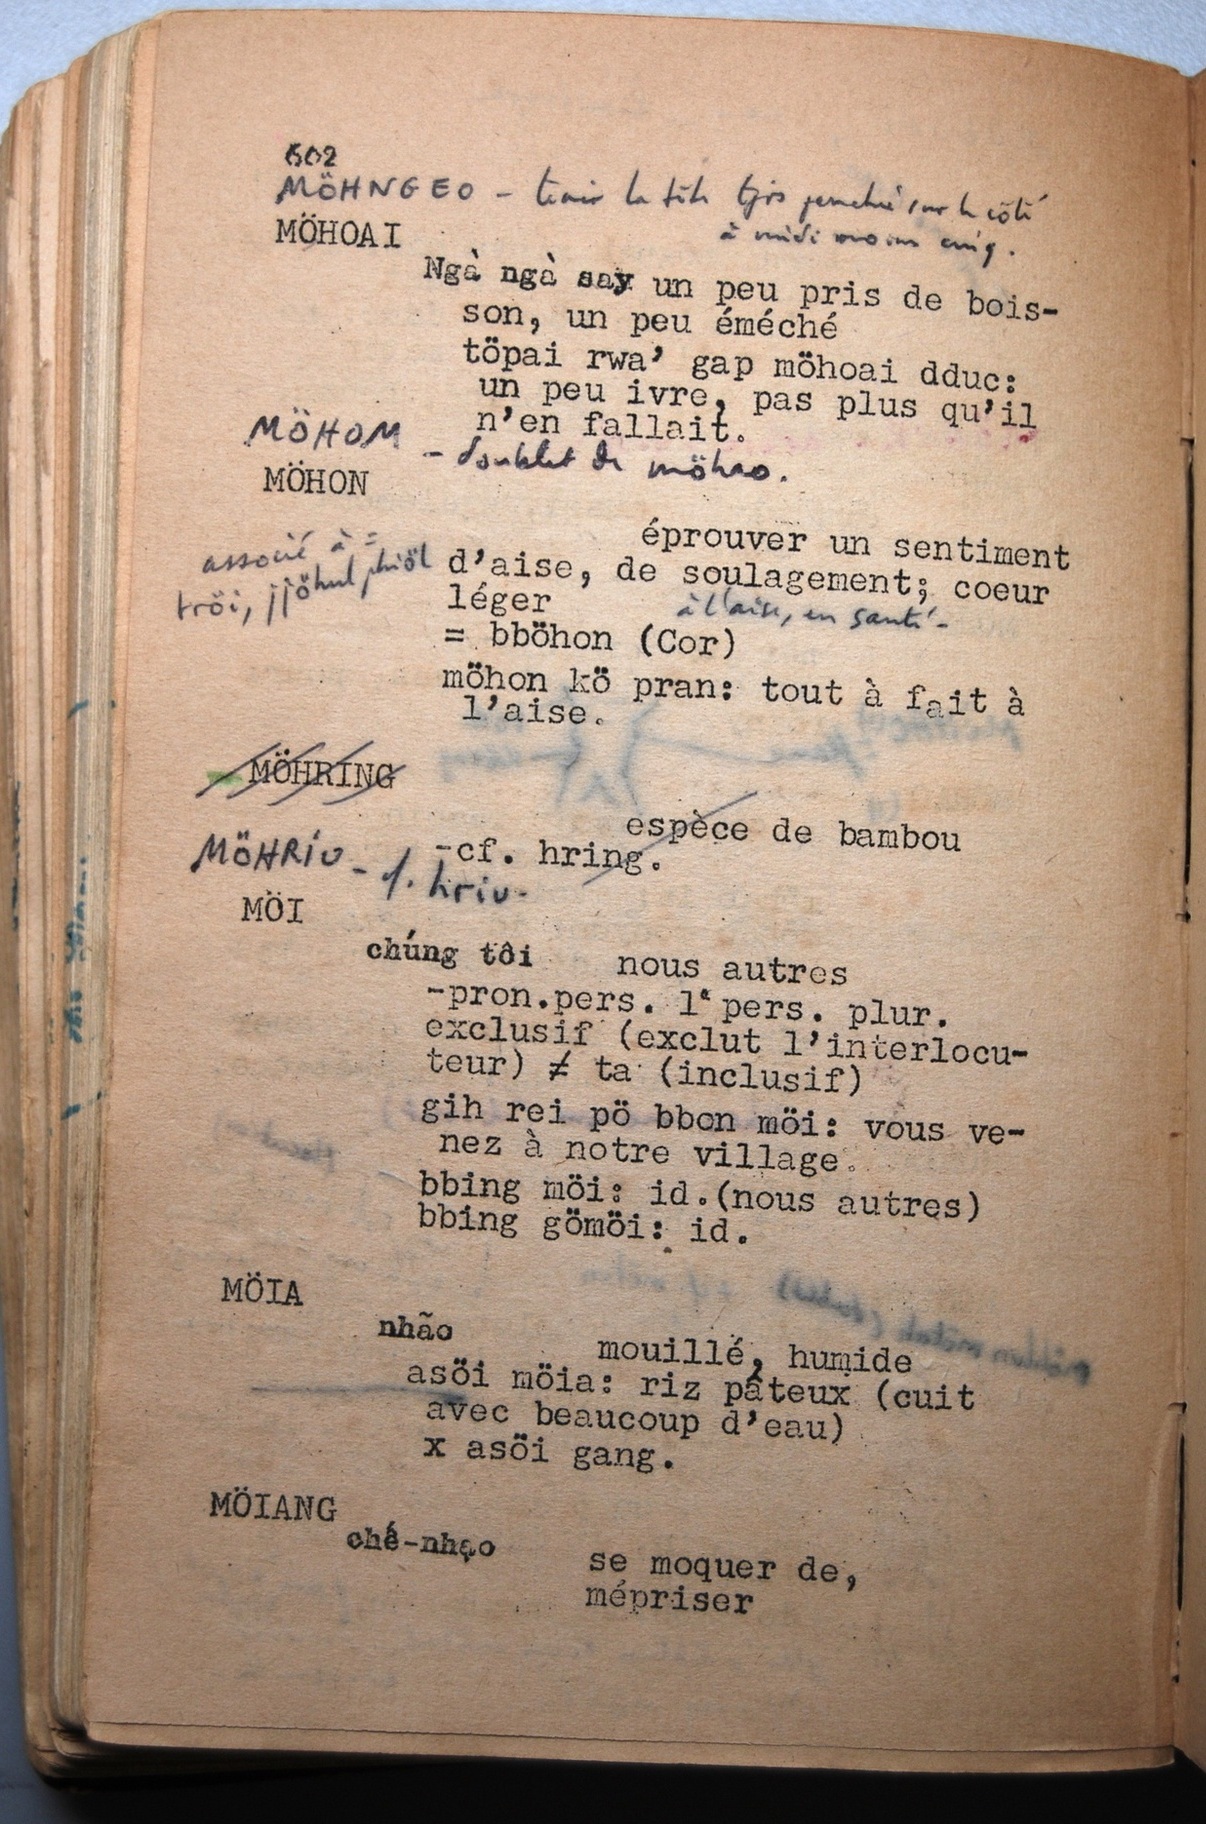 602
MÖHNGEO - tenir la tête tjrs penché sur le côté
à midi moins cinq.
MÖHOAI
Ngà ngà say un peu pris de bois-
son, un peu éméché
töpai rwa' gap möhoai dduc:
un peu ivre, pas plus qu'il
n'en fallait.
MÖHOM
- doublet de möhao.
MÖHON
éprouver un sentiment
d'aise, de soulagement; coeur
léger
à l'aise, en santé-
associé à =
tröi, jjöhul phiöl
= bböhon (Cor)
möhon kö pran: tout à fait à
l'aise.
MÖHRING
espèce de bambou
-cf. hring.
MÖHRIU - cf. hriu-
MÖI
chúng tôi nous autres
-pron.pers. 1e pers. plur.
exclusif (exclut l'interlocu-
teur) ≠ ta (inclusif)
gih rei pö bbon möi: vous ve-
nez à notre village.
bbing möi: id.(nous autres)
bbing gömöi: id.
MÖIA
nhão mouillé, humide
asöi möia: riz pâteux (cuit
avec beaucoup d'eau)
x asöi gang.
MÖIANG
chế-nhạo se moquer de,
mépriser